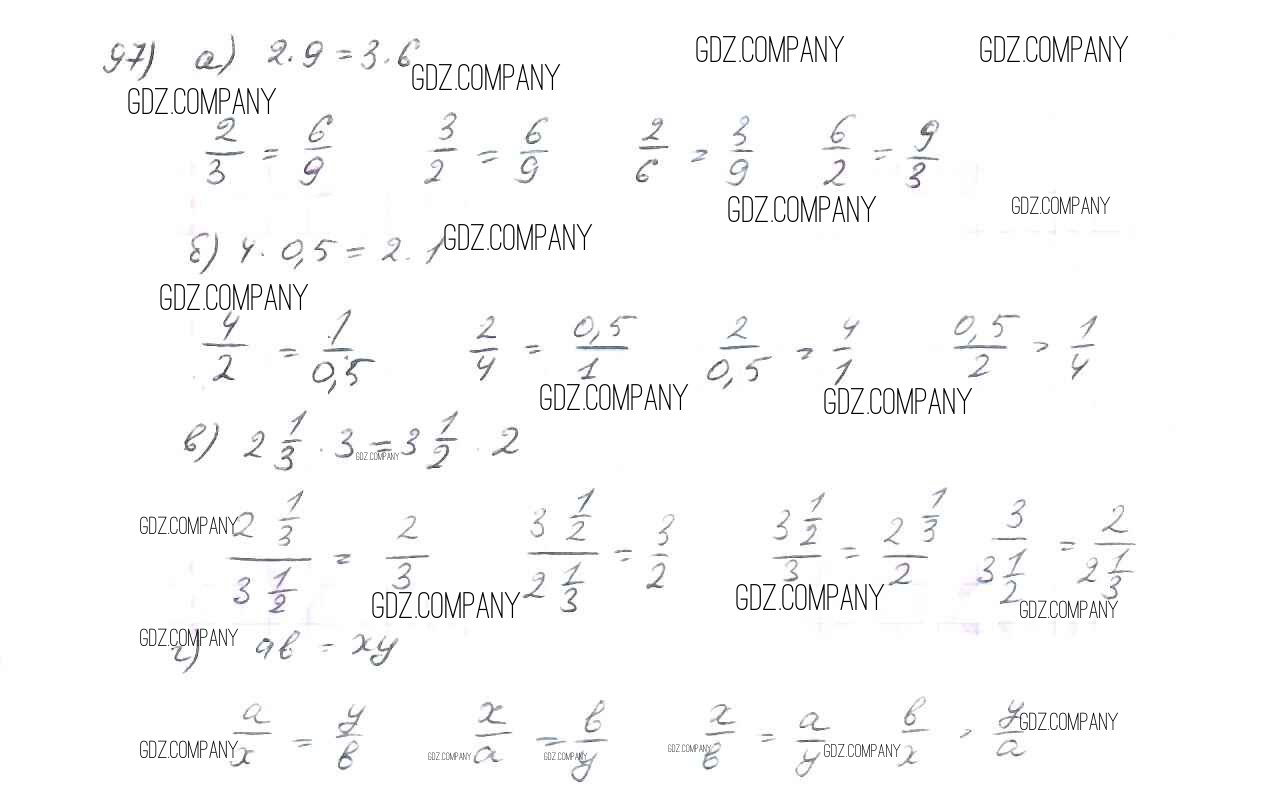 97) а) 2·9=3·6
GDZ.COMPANY GDZ.COMPANY
GDZ.COMPANY
GDZ.COMPANY
2/3 = 6/9 3/2 = 6/9 2/6 = 3/9 6/2 = 9/3
GDZ.COMPANY GDZ.COMPANY
б) 4·0,5=2·1 GDZ.COMPANY
GDZ.COMPANY
4/2 = 1/0,5 2/4 = 0,5/1 2/0,5 = 4/1 0,5/2 = 1/4
GDZ.COMPANY GDZ.COMPANY
в) 2 1/3 · 3 = 3 1/2 · 2
GDZ.COMPANY
GDZ.COMPANY
2 1/3 / 3 1/2 = 2/3 3 1/2 / 2 1/3 = 3/2 3 1/2 / 3 = 2 1/3 / 2 3 / 3 1/2 = 2 / 2 1/3
GDZ.COMPANY GDZ.COMPANY GDZ.COMPANY
GDZ.COMPANY
г) ав = xy
a/x = y/в x/a = в/y x/в = a/y в/x = y/a
GDZ.COMPANY
GDZ.COMPANY GDZ.COMPANY GDZ.COMPANY GDZ.COMPANY GDZ.COMPANY